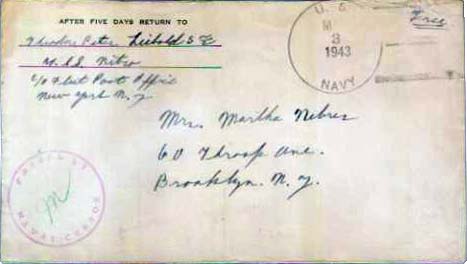 AFTER FIVE DAYS RETURN TO
Theodore Peter Liebold S 2/C
U.S.S. Nitro
C/o Fleet Post Office
New York N.Y.
U. S.
M
3
1943
NAVY
Free
Mrs. Martha Nebres
60 Throop Ave.
Brooklyn. N.Y.
PASSED BY
NAVAL CENSOR